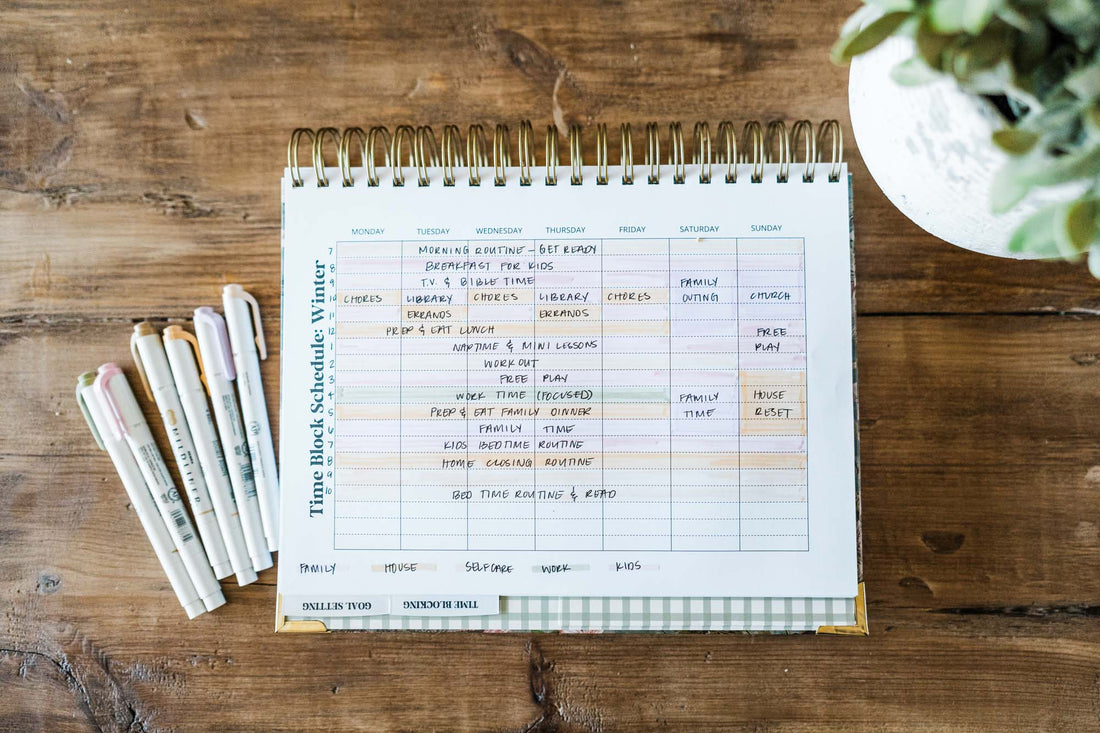 MONDAY TUESDAY WEDNESDAY THURSDAY FRIDAY SATURDAY SUNDAY
Time Block Schedule: Winter
7 MORNING ROUTINE - GET READY
8 BREAKFAST FOR KIDS
9 T.V. & BIBLE TIME FAMILY
10 CHORES LIBRARY CHORES LIBRARY CHORES OUTING CHURCH
11 ERRANDS ERRANDS
12 PREP & EAT LUNCH FREE
1 NAPTIME & MINI LESSONS PLAY
2 WORKOUT
3 FREE PLAY
4 WORK TIME (FOCUSED) FAMILY HOUSE
5 PREP & EAT FAMILY DINNER TIME RESET
6 FAMILY TIME
7 KIDS BEDTIME ROUTINE
8 HOME CLOSING ROUTINE
9
10 BED TIME ROUTINE & READ
FAMILY HOUSE SELFCARE WORK KIDS
GOAL SETTING TIME BLOCKING
MILDLINER